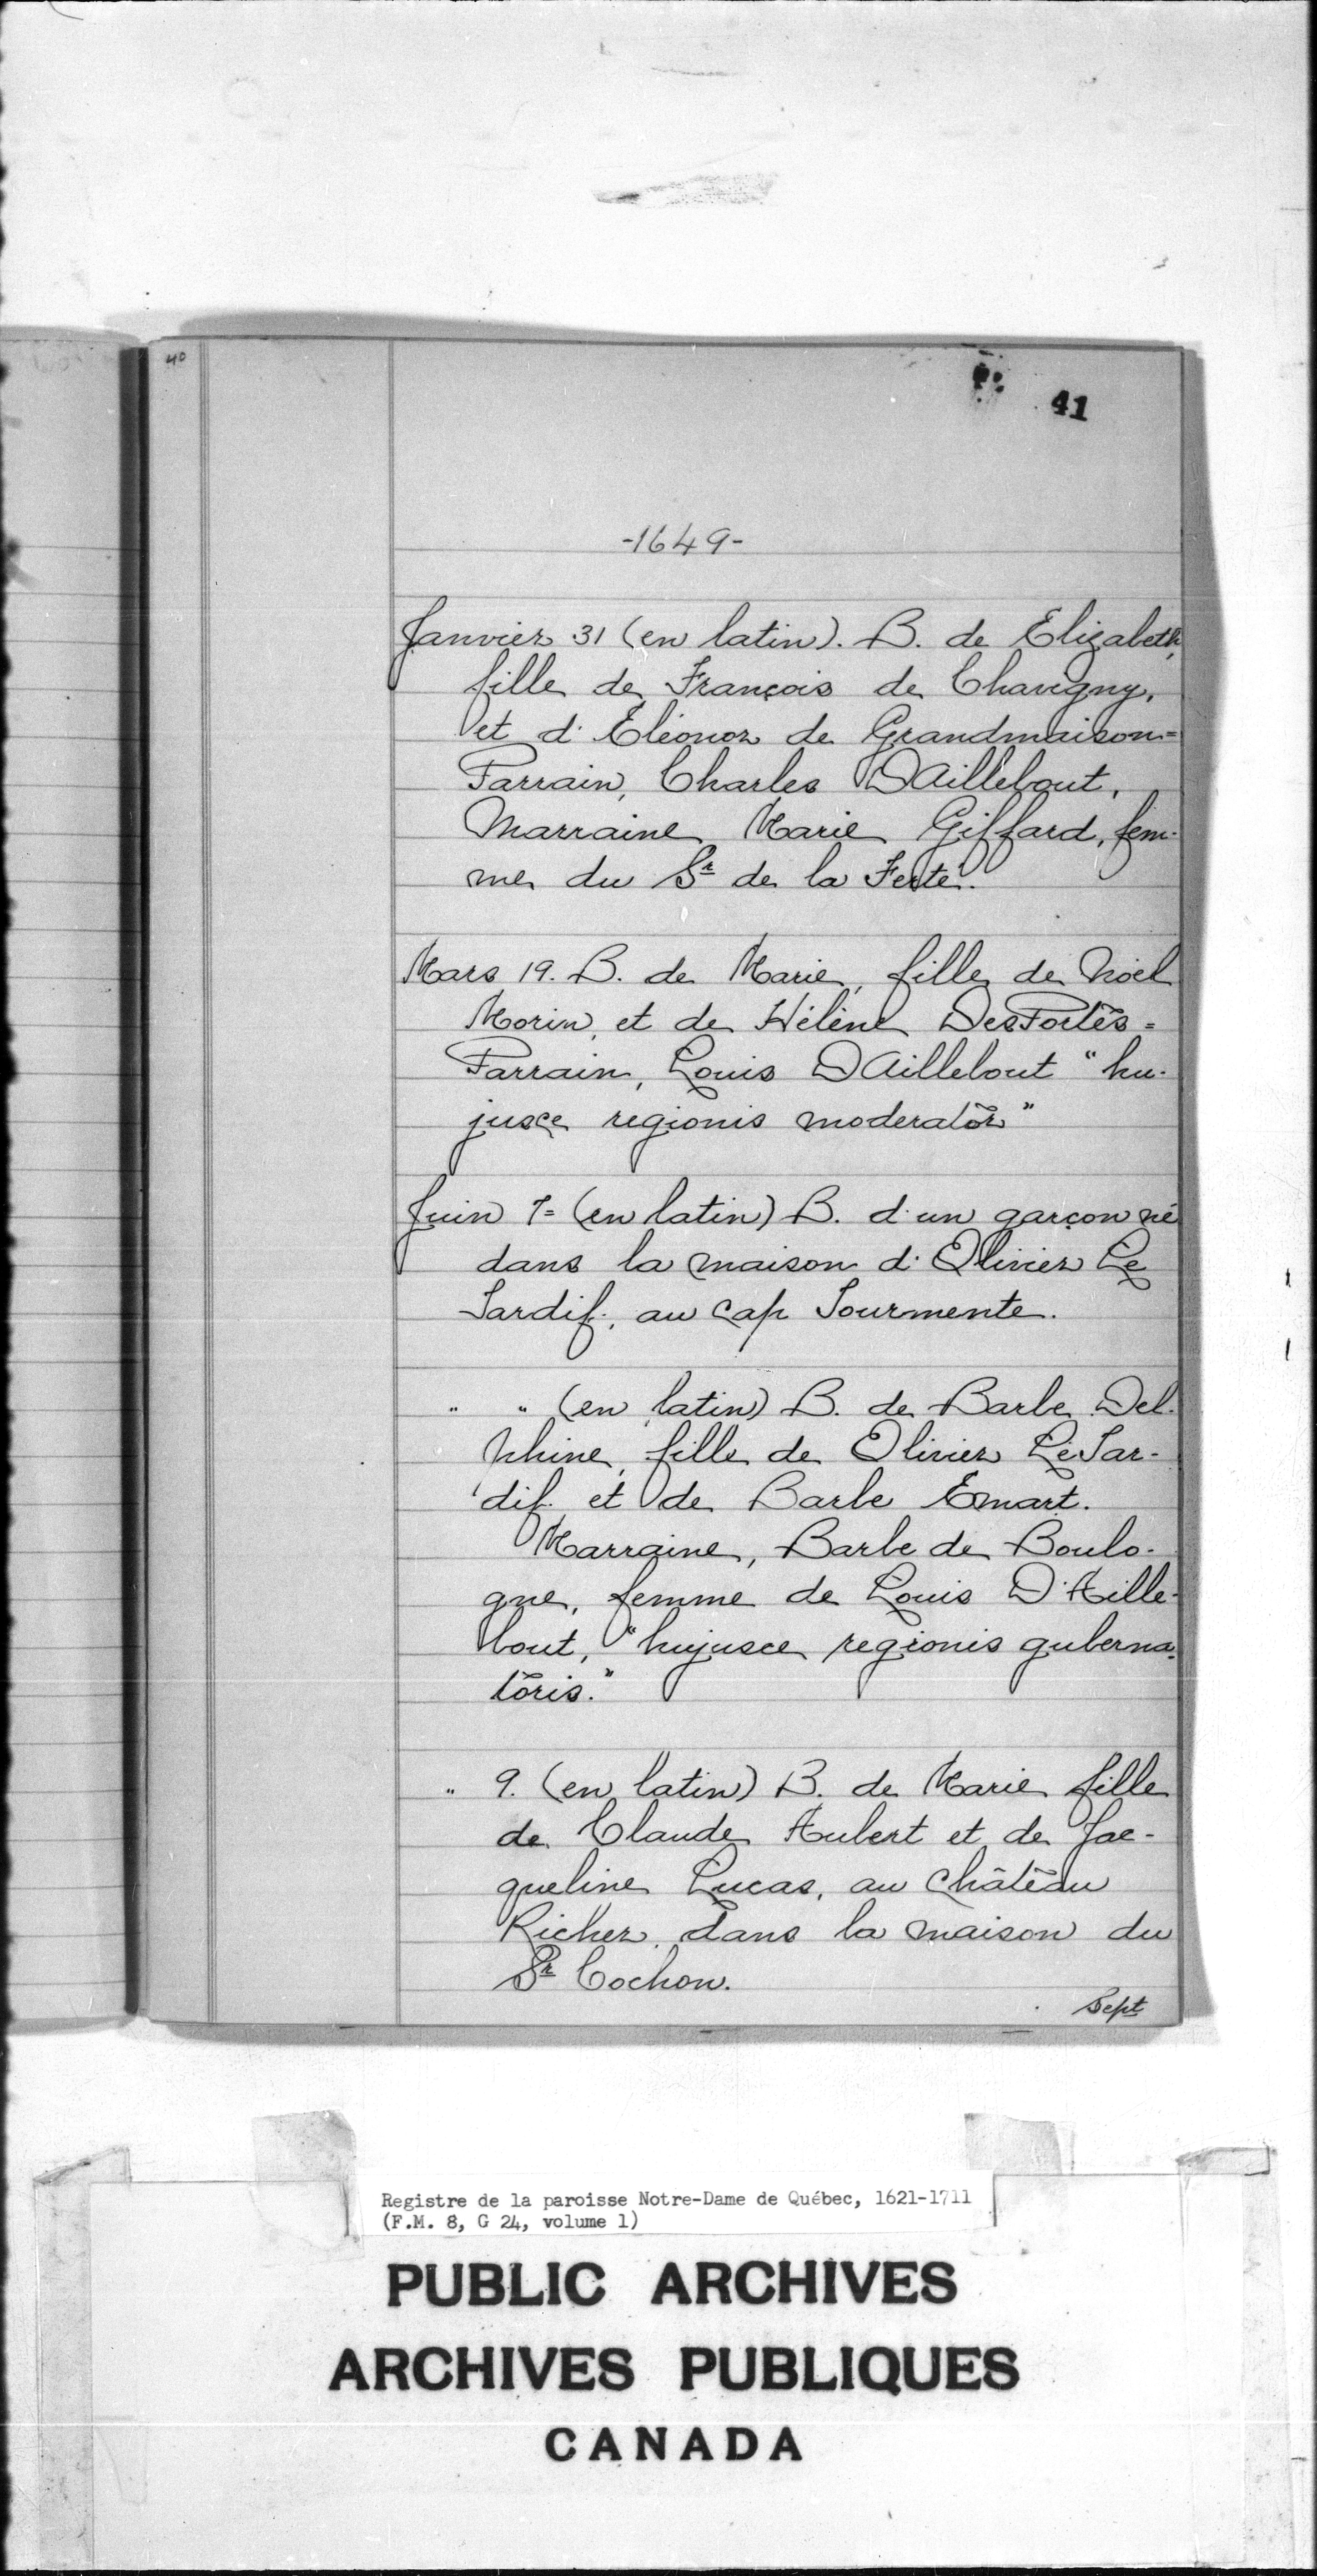 40
41
-1649-
Janvier 31 (en latin). B. de Elizabeth,
fille de François de Chavigny,
et d'Eléonor de Grandmaison=
Parrain, Charles DAillebout,
Marraine Marie Giffard, fem-
me du Sr de la Ferté.
Mars 19. B. de Marie, fille de Noël
Morin, et de Hélène DesPortes=
Parrain, Louis DAillebout "hu-
jusce regionis moderator"
Juin 7= (en latin) B. d'un garçon né
dans la maison d'Olivier Le
Tardif, au cap Tourmente.
" " (en latin) B. de Barbe Del-
phine, fille de Olivier LeTar-
dif et de Barbe Emart.
Marraine, Barbe de Boulo-
gne, femme de Louis D'Aille-
bout, "hujusce regionis guberna-
toris."
" 9. (en latin) B. de Marie fille
de Claude Aubert et de Jac-
queline Lucas, au château
Richer, dans la maison du
Sr Cochon.
Sept
Registre de la paroisse Notre-Dame de Québec, 1621-1711
(F.M. 8, G 24, volume 1)
PUBLIC ARCHIVES
ARCHIVES PUBLIQUES
CANADA